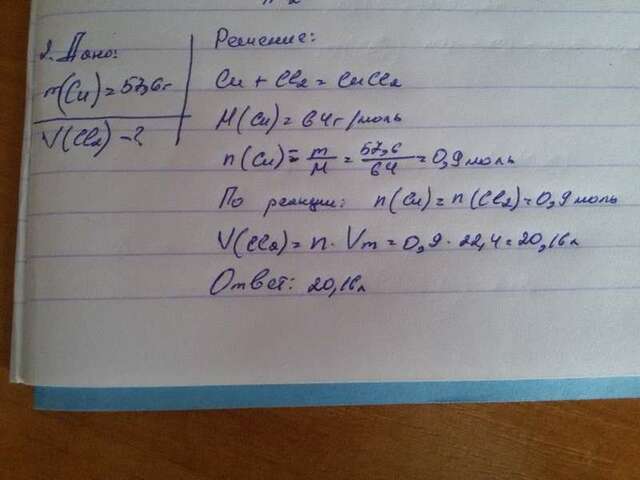 2. Дано:
m(Cu) = 57,6г
V(Cl₂) - ?
Решение:
Cu + Cl₂ = CuCl₂
M(Cu) = 64г/моль
n(Cu) = m/M = 57,6/64 = 0,9 моль
По реакции: n(Cu) = n(Cl₂) = 0,9 моль
V(Cl₂) = n · Vm = 0,9 · 22,4 = 20,16л
Ответ: 20,16л